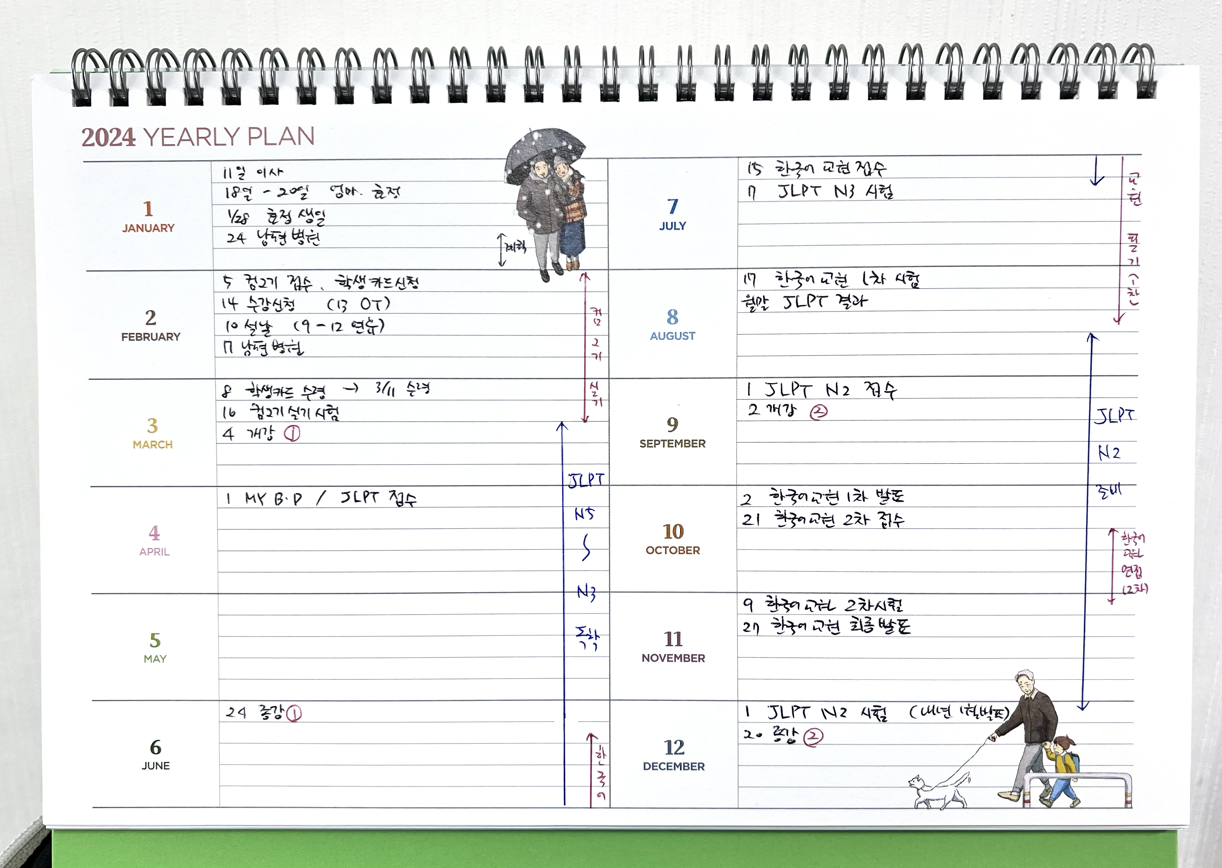 2024 YEARLY PLAN
1
JANUARY
11일 이사
18일 - 20일 엄마. 효정
1/28 효정 생일
24 남편 병원
계획
2
FEBRUARY
5 컴2기 접수、 학생카드신청
14 수강신청 (13 OT)
10 설날 (9 - 12 연휴)
17 남편 병원
컴2기 실기
3
MARCH
8 학생카드 수령 → 3/11 수령
16 컴2기실기 시험
4 개강 ①
4
APRIL
1 MY B·D / JLPT 접수
JLPT
N5
N3
독학
5
MAY
6
JUNE
24 종강 ①
한국어
7
JULY
15 한국어 교원 접수
7 JLPT N3 시험
교원 필기 (1차)
8
AUGUST
17 한국어 교원 1차 시험
월말 JLPT 결과
9
SEPTEMBER
1 JLPT N2 접수
2 개강 ②
JLPT
N2
준비
10
OCTOBER
2 한국어교원 1차 발표
21 한국어교원 2차 접수
한국어
교원
면접
(2차)
11
NOVEMBER
9 한국어 교원 2차시험
27 한국어 교원 최종 발표
12
DECEMBER
1 JLPT N2 시험 (내년 1월발표)
20 종강 ②